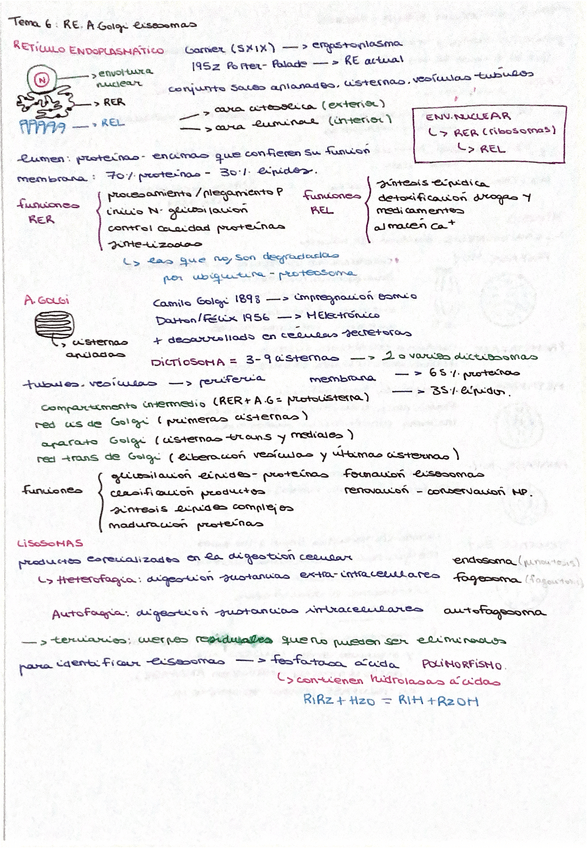 Tema 6: RE. A. Golgi lisosomas
RETÍCULO ENDOPLASMÁTICO Garnier (SXIX) —> ergastoplasma
1952 Porter-Palade —> RE actual
conjunto sacos aplanados, cisternas, vesículas túbulos
N
envoltura
nuclear
RER
REL
cara citosólica (exterior)
cara luminal (interior)
ENV. NUCLEAR
↳ RER (ribosomas)
↳ REL
lumen: proteínas - encimas que confieren su función
membrana: 70% proteínas - 30% lípidos.
funciones
RER
procesamiento / plegamiento P
inicio N- glicosilación
control calidad proteínas
sintetizadas
↳ las que no, son degradadas
por ubiquitina - proteosoma
funciones
REL
síntesis lipídica
detoxificación drogas y
medicamentos
almacén Ca+
A. GOLGI
Camilo Golgi 1898 —> impregnación osmio
Dalton/Félix 1956 —> MElectrónico
+ desarrollado en células secretoras
↳ cisternas
apiladas
DICTIOSOMA = 3-9 cisternas —> 2 o varios dictiosomas
túbulos. vesículas —> periferia membrana —> 65% proteínas
—> 35% lípidos.
compartimento intermedio (RER + A.G = protocisterna)
red cis de Golgi (primeras cisternas)
aparato Golgi (cisternas trans y mediales)
red trans de Golgi (liberación vesículas y últimas cisternas)
funciones
glicosilación lípidos - proteínas formación lisosomas
clasificación productos renovación - conservación MP.
síntesis lípidos complejos
maduración proteínas
LISOSOMAS
productos especializados en la digestión celular endosoma (pinocitosis)
↳ Heterofagia: digestión sustancias extra-intracelulares fagosoma (fagocitosis)
Autofagia: digestión sustancias intracelulares autofagosoma
—> terciarios: cuerpos residuales que no pueden ser eliminados
para identificar lisosomas —> fosfatasa ácida POLIMORFISMO.
↳ contienen hidrolasas ácidas
R1R2 + H2O = R1H + R2OH